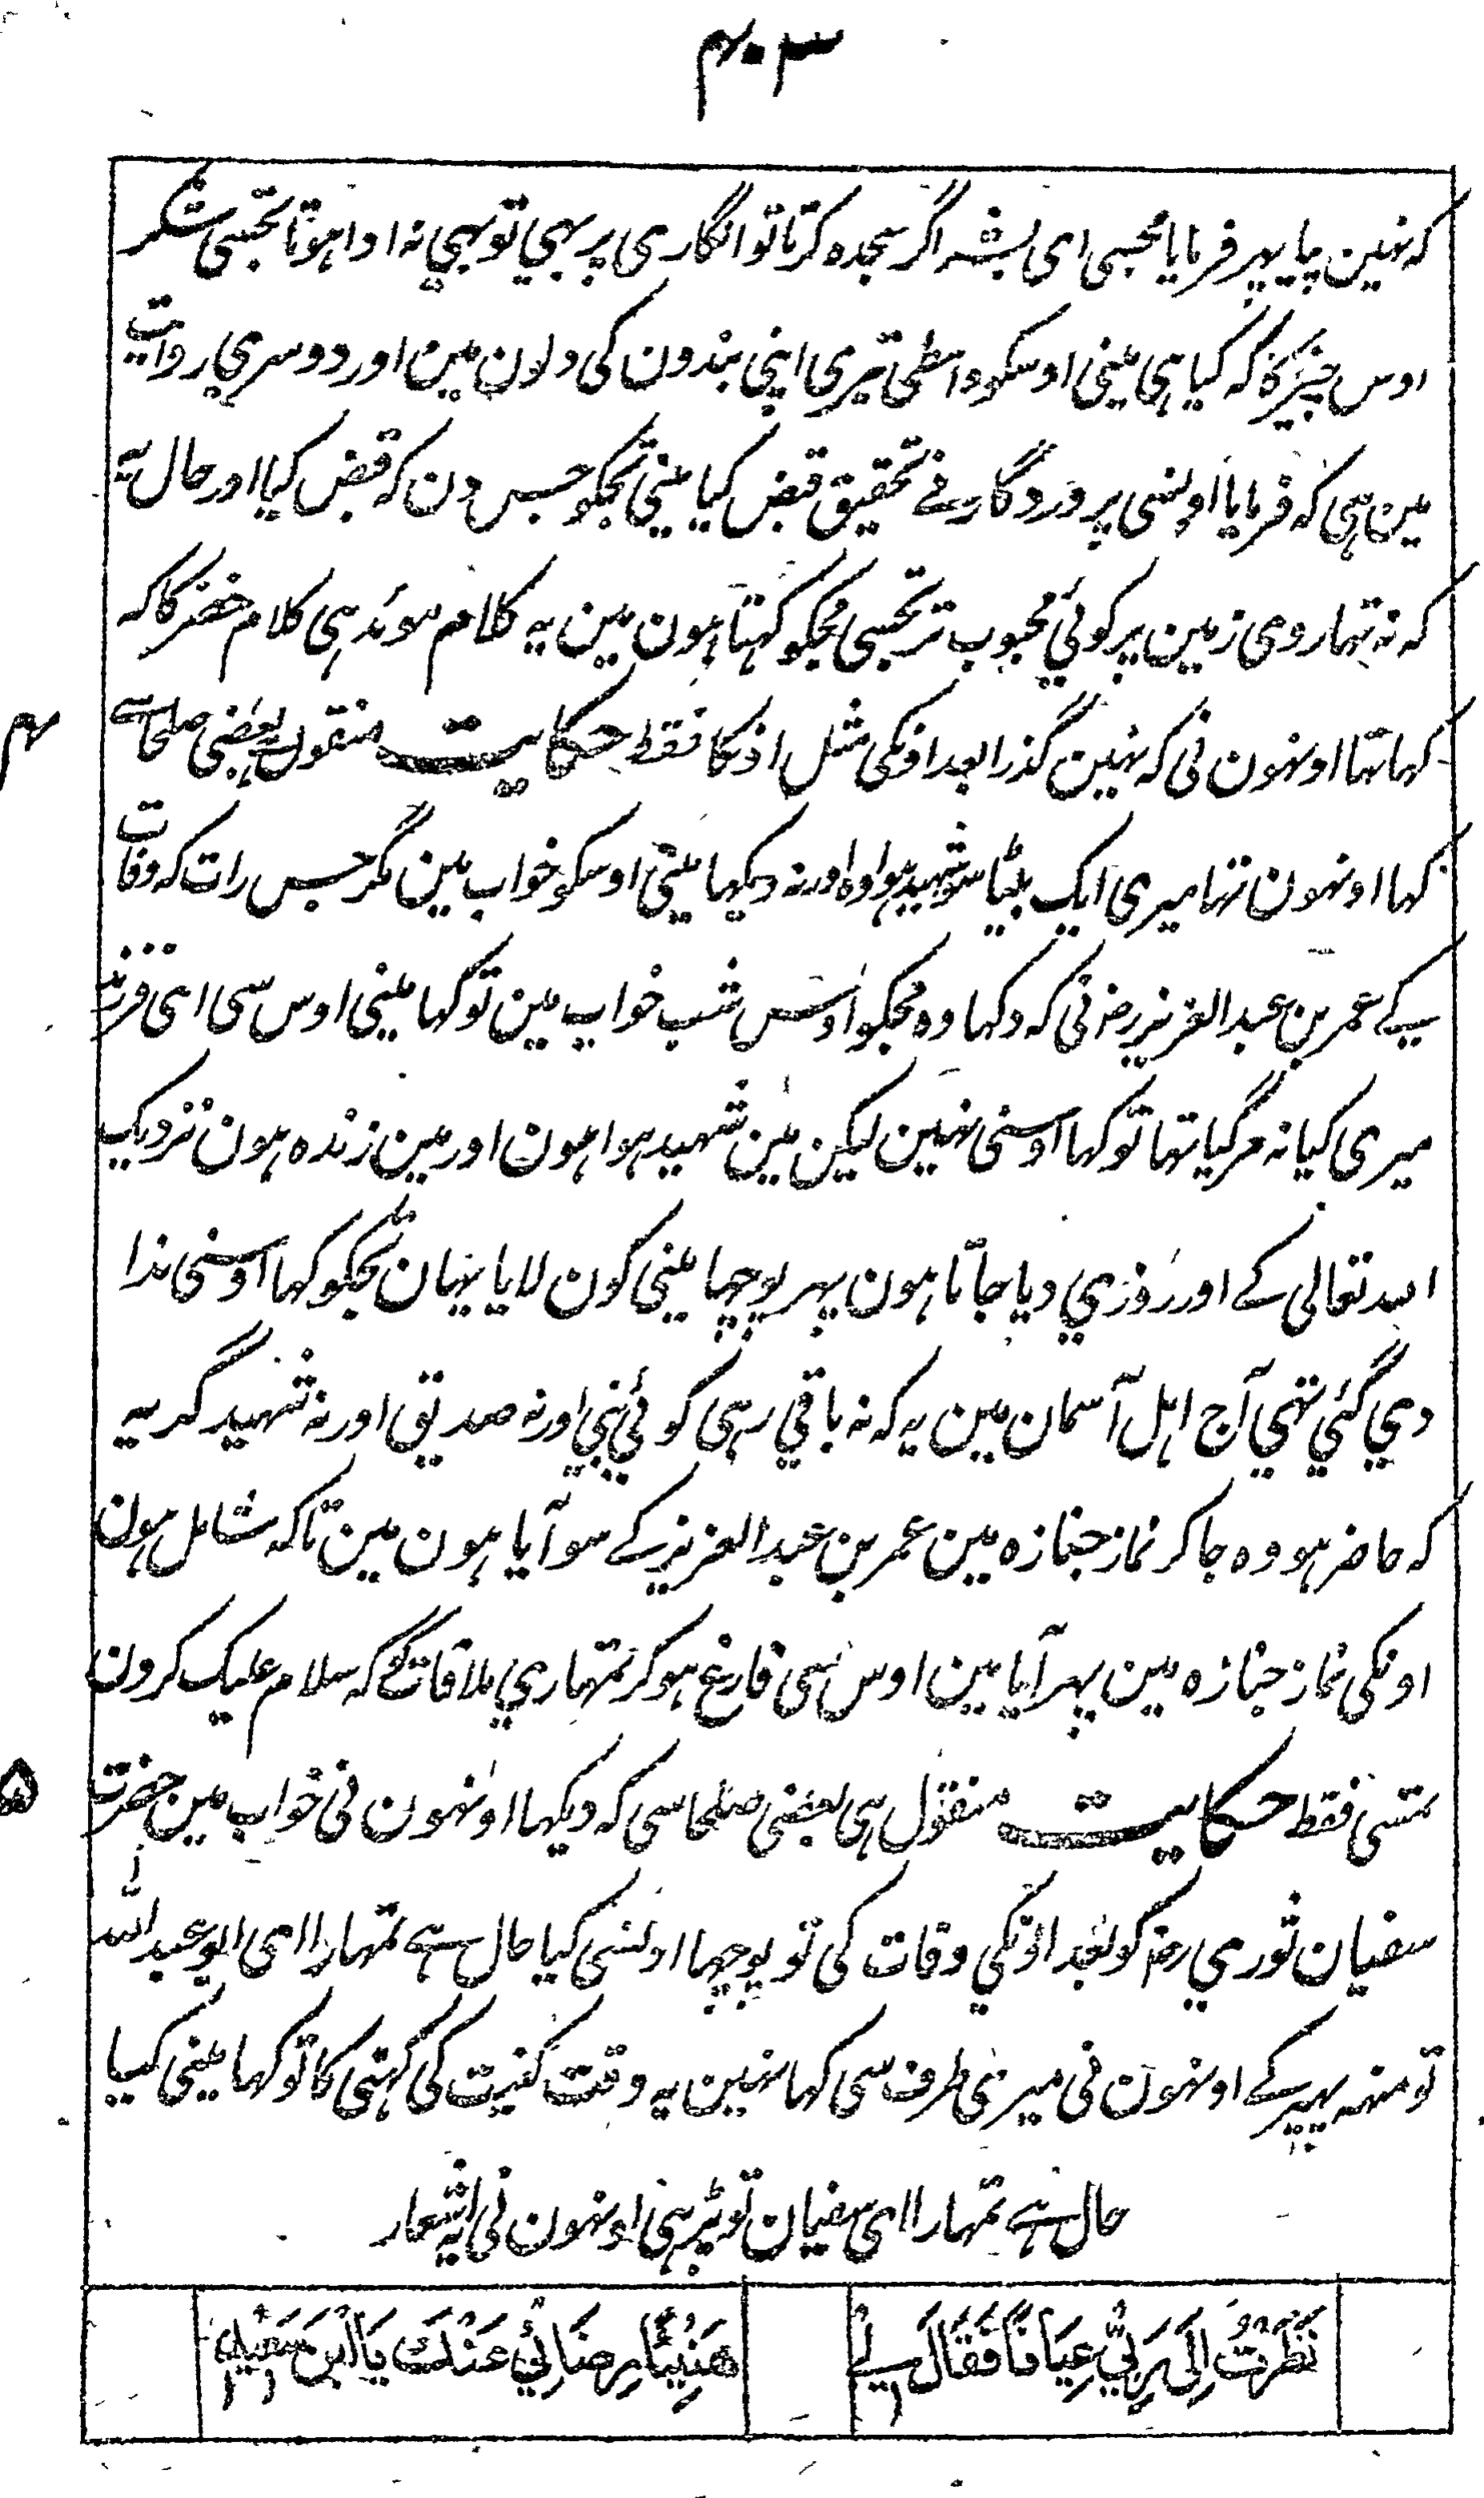 ۴۰۳
کہ نہین پایہر فرمایا مجسی ای بشر اگر سجدہ کرتا تو انگاری پر بہی تو بہی نہ ادا ہوتا تجسی شکر
اوس چیز کا کہ کیا ہی مینی اوسکو واسطی تیری اپنی بندون کی دلون مین اور دوسری روایت
مین ہی کہ فرمایا اونسی پروردگار نے تحقیق قبض کیا مینی تجکو جس دن کہ قبض کیا اور حال یہ
کہ نہ تہا روی زمین پر کوئی محبوب تر تجسی مجکو کہتا ہون مین یہ کلام موئد ہی کلام خضر کا کہ
کہا تہا اونہون نی کہ نہین گذرا بعد اونکی مثل اونکا فقط حکایت منقول ہے بعضی صلحا سے
۴
کہا اونہون تہا میری ایک بیٹا سو شہید ہوا وہ اور نہ دیکہا مینی اوسکو خواب مین مگر جس رات کہ وفات
کے عمر بن عبد العزیز رضہ نی کہ دکہا وہ مجکو اوس شب خواب مین تو کہا مینی اوس سی ای فرزند
میری کیا نہ مر گیا تہا تو کہا اوسنی نہین لیکن مین شہید ہوا ہون اور مین زندہ ہون نزدیک
اللہ تعالی کے اور روزی دیا جاتا ہون پہر پوچہا مینی کون لایا یہان تجکو کہا اوسنی ندا
دی گئی تہی آج اہل آسمان مین یہ کہ نہ باقی رہی کوئی نبی اور نہ صدیق اور نہ شہید مگر یہ
کہ حاضر ہو وہ جا کر نماز جنازہ مین عمر بن عبد العزیز کے سو آیا ہون مین تاکہ شامل ہون
اونکی نماز جنازہ مین پہر آیا مین اوس سی فارغ ہو کر تمہاری ملاقات کو کہ سلام علیک کرون
تمسی فقط حکایت منقول ہی بعضی صلحا سی کہ دیکہا اونہون نی خواب مین حضرت
۵
سفیان ثوری رضہ کو بعد اونکی وفات کی تو پوچہا اونسی کیا حال ہے تمہارا ای ابو عبد اللہ
تو منہ پہیر کے اونہون نی میری طرف سی کہا نہین یہ وقت کنیت کی کہنی کا تو کہا مینی کیا
حال ہے تمہارا ای سفیان تو پڑہی اونہون نی یہ اشعار
نَظَرْتُ اِلَی رَبِّی عِیَانًا فَقَالَ لِی هَنِیْئًا رِضَائِی عَنْكَ یَا ابْنَ سَعِیْدٍ